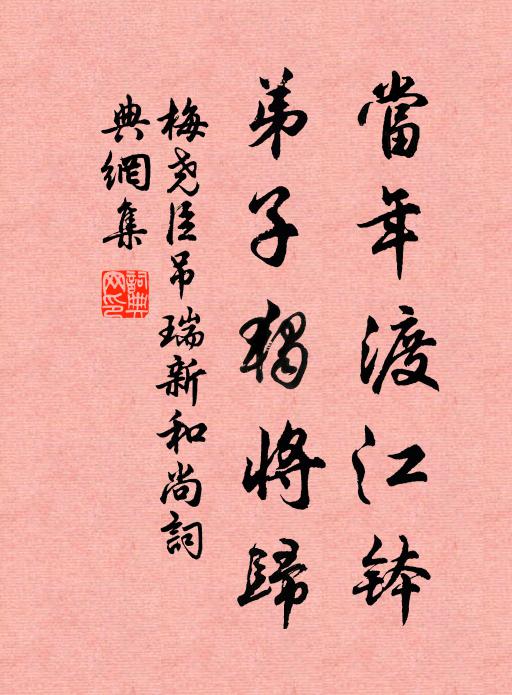 當年渡江鉢
弟子獨將歸
梅尧臣吊瑞新和尚詞
典網集
詞典
网印